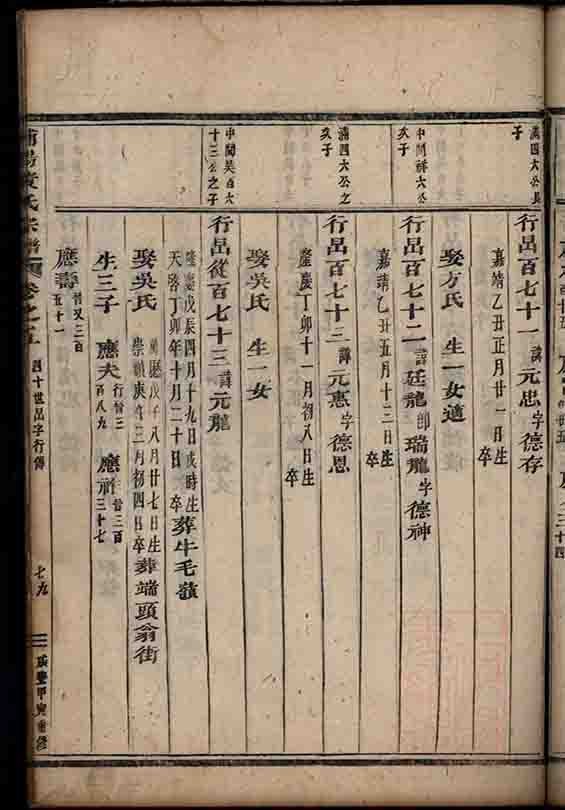 滿四大公長子
行呂百七十一 諱元忠 字德存
嘉靖乙丑正月廿一日生 卒
娶方氏 生一女適
中間祥六公次子
行呂百七十二 諱廷龍 即瑞龍 字德神
嘉靖乙丑五月十三日生 卒
滿四大公之次子
行呂百七十三 諱元惠 字德恩
隆慶丁卯十一月初八日生 卒
娶吳氏 生一女
中間吳百六十三公之子
行呂從百七十三 諱元龍
隆慶戊辰四月十九日戌時生
天啓丁卯年十月二十日 卒 葬牛毛嶺
娶吳氏
萬歷戊子八月廿七日生
崇禎庚辰二月初四日卒 葬端頭翁街
生三子 應夫 行晉三百八九 應祥 晉三百三十七
應壽 晉又三百五十一
氏宗譜 卷之五 四十世呂字行傳 七九 咸豐甲寅重修